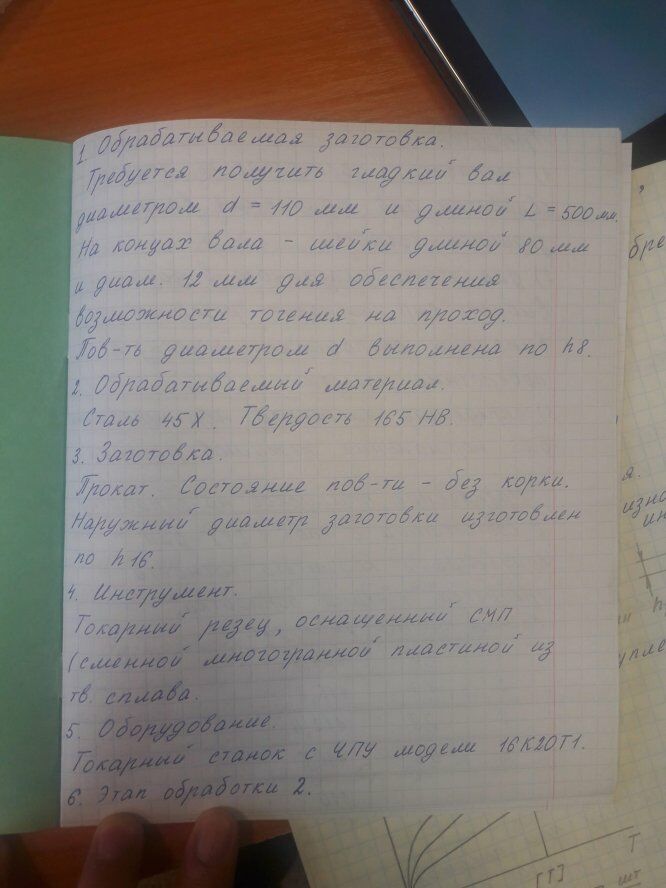 1. Обрабатываемая заготовка.
Требуется получить гладкий вал
диаметром d = 110 мм и длиной L = 500 мм.
На концах вала - шейки длиной 80 мм
и диам. 12 мм для обеспечения
возможности точения на проход.
Пов-ть диаметром d выполнена по h8.
2. Обрабатываемый материал.
Сталь 45Х. Твердость 165 НВ.
3. Заготовка.
Прокат. Состояние пов-ти - без корки.
Наружный диаметр заготовки изготовлен
по h16.
4. Инструмент.
Токарный резец, оснащенный СМП
(сменной многогранной пластиной из
тв. сплава.
5. Оборудование.
Токарный станок с ЧПУ модели 16К20Т1.
6. Этап обработки 2.
бре
я.
изно
ин
h
упле
T
[T]
шт